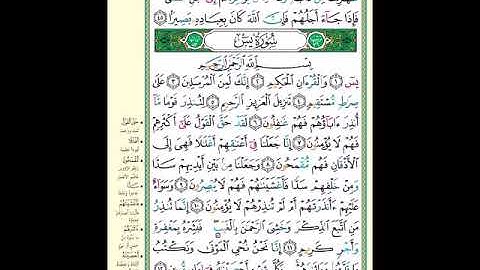 فَإِذَا جَآءَ أَجَلُهُمْ فَإِنَّ ٱللَّهَ كَانَ بِعِبَادِهِۦ بَصِيرًا ٤٥
سُورَةُ يسٓ
بِسْمِ ٱللَّهِ ٱلرَّحْمَٰنِ ٱلرَّحِيمِ
يسٓ ١ وَٱلْقُرْءَانِ ٱلْحَكِيمِ ٢ إِنَّكَ لَمِنَ ٱلْمُرْسَلِينَ ٣ عَلَىٰ
صِرَٰطٍ مُّسْتَقِيمٍ ٤ تَنزِيلَ ٱلْعَزِيزِ ٱلرَّحِيمِ ٥ لِتُنذِرَ قَوْمًا مَّآ
أُنذِرَ ءَابَآؤُهُمْ فَهُمْ غَٰفِلُونَ ٦ لَقَدْ حَقَّ ٱلْقَوْلُ عَلَىٰٓ أَكْثَرِهِمْ
فَهُمْ لَا يُؤْمِنُونَ ٧ إِنَّا جَعَلْنَا فِىٓ أَعْنَٰقِهِمْ أَغْلَٰلًا فَهِىَ إِلَى
ٱلْأَذْقَانِ فَهُم مُّقْمَحُونَ ٨ وَجَعَلْنَا مِنۢ بَيْنِ أَيْدِيهِمْ سَدًّا
وَمِنْ خَلْفِهِمْ سَدًّا فَأَغْشَيْنَٰهُمْ فَهُمْ لَا يُبْصِرُونَ ٩ وَسَوَآءٌ
عَلَيْهِمْ ءَأَنذَرْتَهُمْ أَمْ لَمْ تُنذِرْهُمْ لَا يُؤْمِنُونَ ١٠ إِنَّمَا تُنذِرُ
مَنِ ٱتَّبَعَ ٱلذِّكْرَ وَخَشِىَ ٱلرَّحْمَٰنَ بِٱلْغَيْبِ فَبَشِّرْهُ بِمَغْفِرَةٍ
وَأَجْرٍ كَرِيمٍ ١١ إِنَّا نَحْنُ نُحْىِ ٱلْمَوْتَىٰ وَنَكْتُبُ